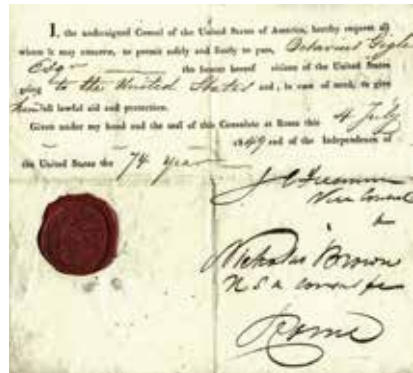 I, the undersigned Consul of the United States of America, hereby request all
whom it may concern, to permit safely and freely to pass, Octavius
Esqr the bearer hereof citizen of the United States
going to the United States and, in case of need, to give
him all lawful aid and protection.
Given under my hand and the seal of this Consulate at Rome this 4 July
1849 and of the Independence of
the United States the 74 year
Vice Consul
Nicholas Brown
U S A Consul for
Rome